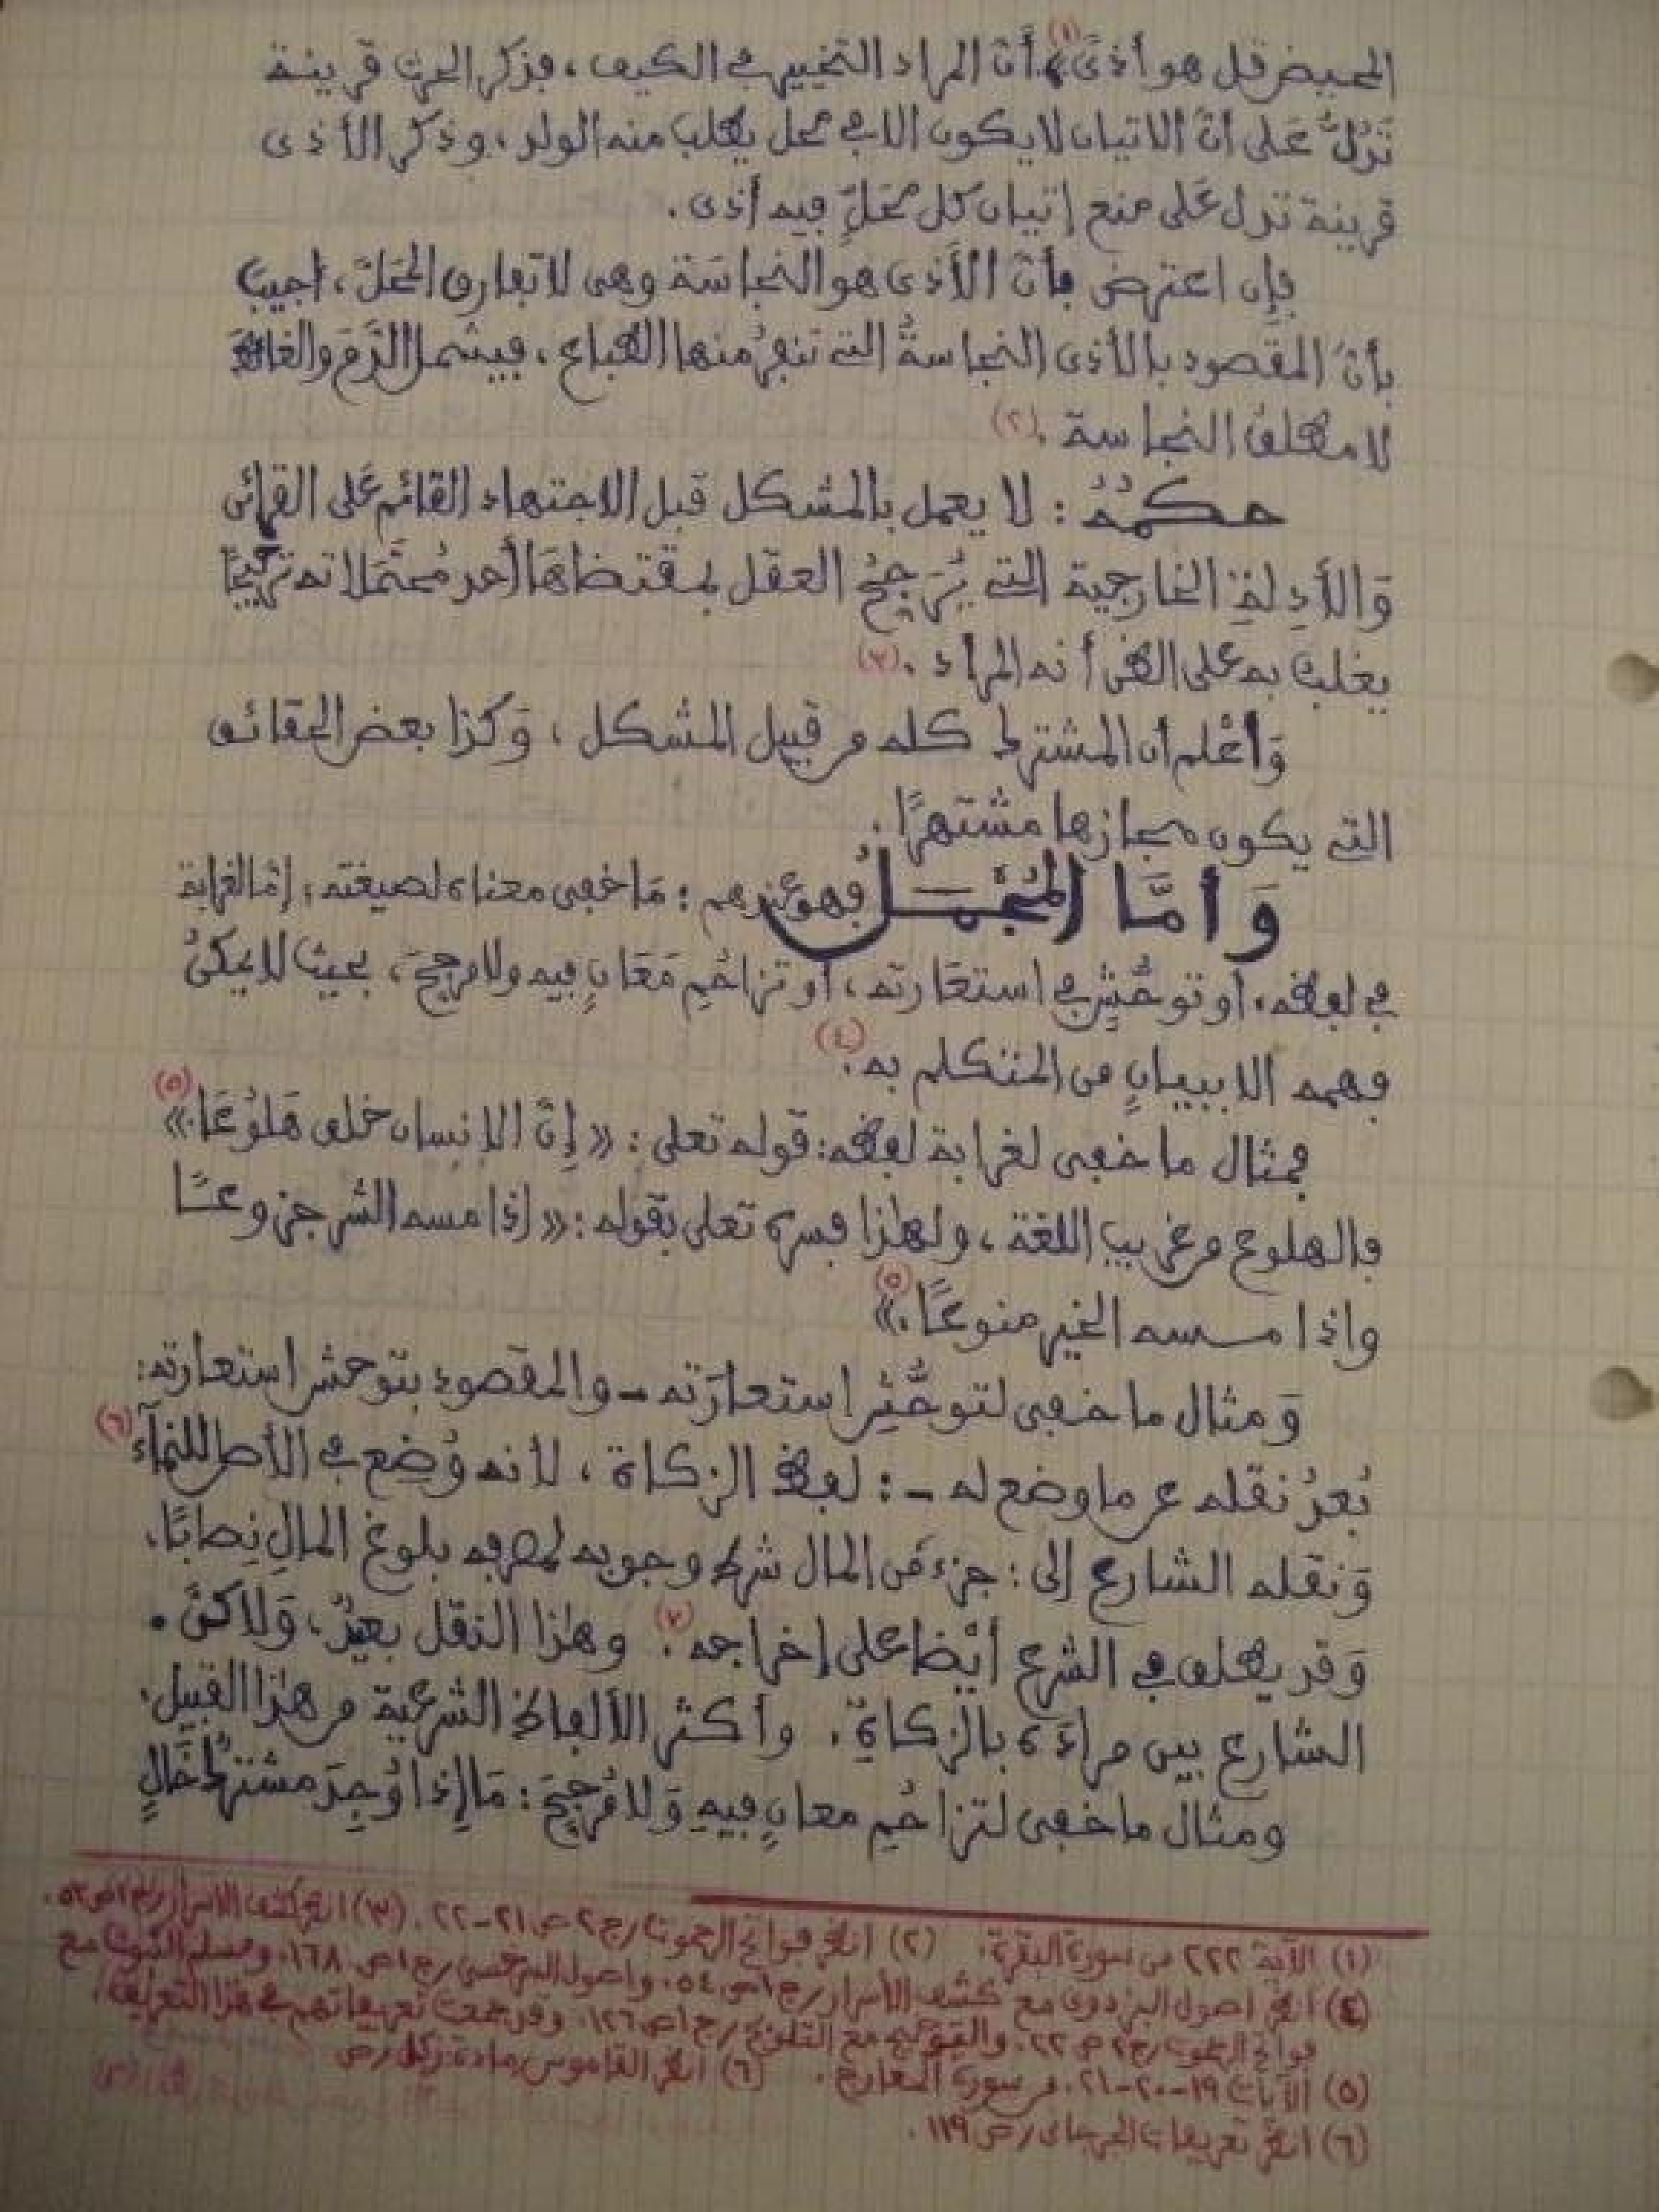 المحيض قل هو أذى (١) أن المراد التخيير في الكيف، فذكر الحرث قرينة
تَدُلُّ عَلى أنّ الاتيان لا يكون الا في محل يطلب منه الولد، وذكر الأذى
قرينة تدل عَلى منع إتيان كل مَحَلٍّ فيه أذى.
فإن اعترض بأنّ الأَذى هو النجاسَة وهى لا تفارق المَحَلّ، اجيبَ
بأنّ المقصود بالأذى النجاسةُ التي تنفِرُ منها الطباع، فيشمل الدَّمَ والغائط
لا مطلقُ النجاسة. (٢)
حكمُهُ: لا يعمل بالمشكل قبل الاجتهاد القائم عَلى القرائن
وَالأدِلةِ الخارجية التي يُرَجِحُ العقل بمقتضاهَا أحد مُحتَمَلاته ترجيحًا
يغلب به على الظن أنه المراد. (٣)
وَأعْلم أن المشترك كله من قبيل المشكل، وَكذا بعض الحقائق
التي يكون مجازها مشتهرًا.
وَأمَّا المُجْمَلُ فهو عندهم: مَا خفى معناه لصيغته؛ إمّا لغرابة
في لفظه، أو توحُّشٍ في استعَارته، أو تزاحُمِ مَعَانٍ فيه ولا مرجحَ، بحيث لا يمكنُ
فهمه الا ببيانٍ من المتكلم به. (٤)
فمثال ما خفى لغرابة لفظه: قوله تعلى: «إنّ الانسان خلق هَلوُعًا.» (٥)
فالهلوع من غريب اللغة، ولهٰذا فسره تعلى بقوله: «اذا مسه الشر جزوعًا
واذا مسه الخير منوعًا.» (٥)
وَمثال ما خفى لتوحُّشِ استعارَته - والمقصود بتوحش استعارته:
بُعدُ نقله عن ما وضع له -: لفظ الزكاة، لأنه وُضِع في الأصل للنمآء (٦)
وَنقله الشارع إلى: جزء مَن المال شرط وجوبه لمصرفه بلوغ المالِ نِصابًا،
وَقد يطلق في الشرع أيْضا على إخراجه. (٧) وهٰذا النقل بعيدٌ، وَلاكنّ
الشارع بين مرادَه بالزكاةِ. وأكثر الألفاظ الشرعية من هٰذا القبيل.
ومثال ما خفى لتزاحُمِ معانٍ فيهِ وَلا مُرجِحَ: مَا إِذا وُجِدَ مشتركٌ خَالٍ
(١) الآية ٢٢٢ من سورة البقرة. (٢) انظر فواتح الرحموت/ج٢ ص٢١-٢٢. (٣) انظر كشف الاسرار/ج١ ص٥٢.
(٤) انظر اصول البزدوى مع كشف الأسرار/ج١ ص٥٤. واصول السرخسى/ج١ ص١٦٨. ومسلم الثبوت مع
فواتح الرحموت/ج٢ ص٢٢. والتوضيح مع التلويح/ج١ ص١٢٦. وقد جمعت تعريفاتهم في هٰذا التعريف.
(٥) الآيات ١٩-٢٠-٢١. من سورة المعارج. (٦) انظر القاموس مادة: زكا/ص
(٦) انظر تعريفات الجرجانى/ص١١٩.